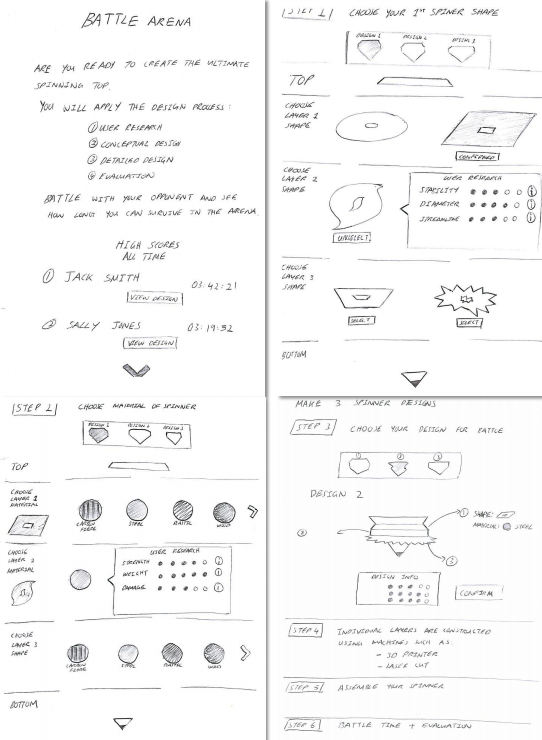 BATTLE ARENA
ARE YOU READY TO CREATE THE ULTIMATE
SPINNING TOP.
YOU WILL APPLY THE DESIGN PROCESS:
① USER RESEARCH
② CONCEPTUAL DESIGN
③ DETAILED DESIGN
④ EVALUATION
BATTLE WITH YOUR OPPONENT AND SEE
HOW LONG YOU CAN SURVIVE IN THE ARENA.
HIGH SCORES
ALL TIME
① JACK SMITH 03:42:21
VIEW DESIGN
② SALLY JONES 03:19:52
VIEW DESIGN
STEP 1 CHOOSE YOUR 1ST SPINER SHAPE
DESIGN 1 DESIGN 2 DESIGN 3
TOP
CHOOSE
LAYER 1
SHAPE
CONFIRMED
CHOOSE
LAYER 2
SHAPE
UNSELECT
USER RESEARCH
STABILITY
DIAMETER
STREAMLINE
CHOOSE
LAYER 3
SHAPE
SELECT SELECT
BOTTOM
STEP 2 CHOOSE MATERIAL OF SPINNER
DESIGN 1 DESIGN 2 DESIGN 3
TOP
CHOOSE
LAYER 1
MATERIAL
CARBON
FIBRE
STEEL PLASTIC WOOD
CHOOSE
LAYER 2
MATERIAL
USER RESEARCH
STRENGTH
WEIGHT
DAMAGE
CHOOSE
LAYER 3
SHAPE
CARBON
FIBRE
STEEL PLASTIC WOOD
BOTTOM
MAKE 3 SPINNER DESIGNS
STEP 3 CHOOSE YOUR DESIGN FOR BATTLE
① ② ③
DESIGN 2
① SHAPE:
MATERIAL: STEEL
②
③
DESIGN INFO
CONFIRM
STEP 4 INDIVIDUAL LAYERS ARE CONSTRUCTED
USING MACHINES SUCH AS:
- 3D PRINTER
- LASER CUT
STEP 5 ASSEMBLE YOUR SPINNER
STEP 6 BATTLE TIME + EVALUATION